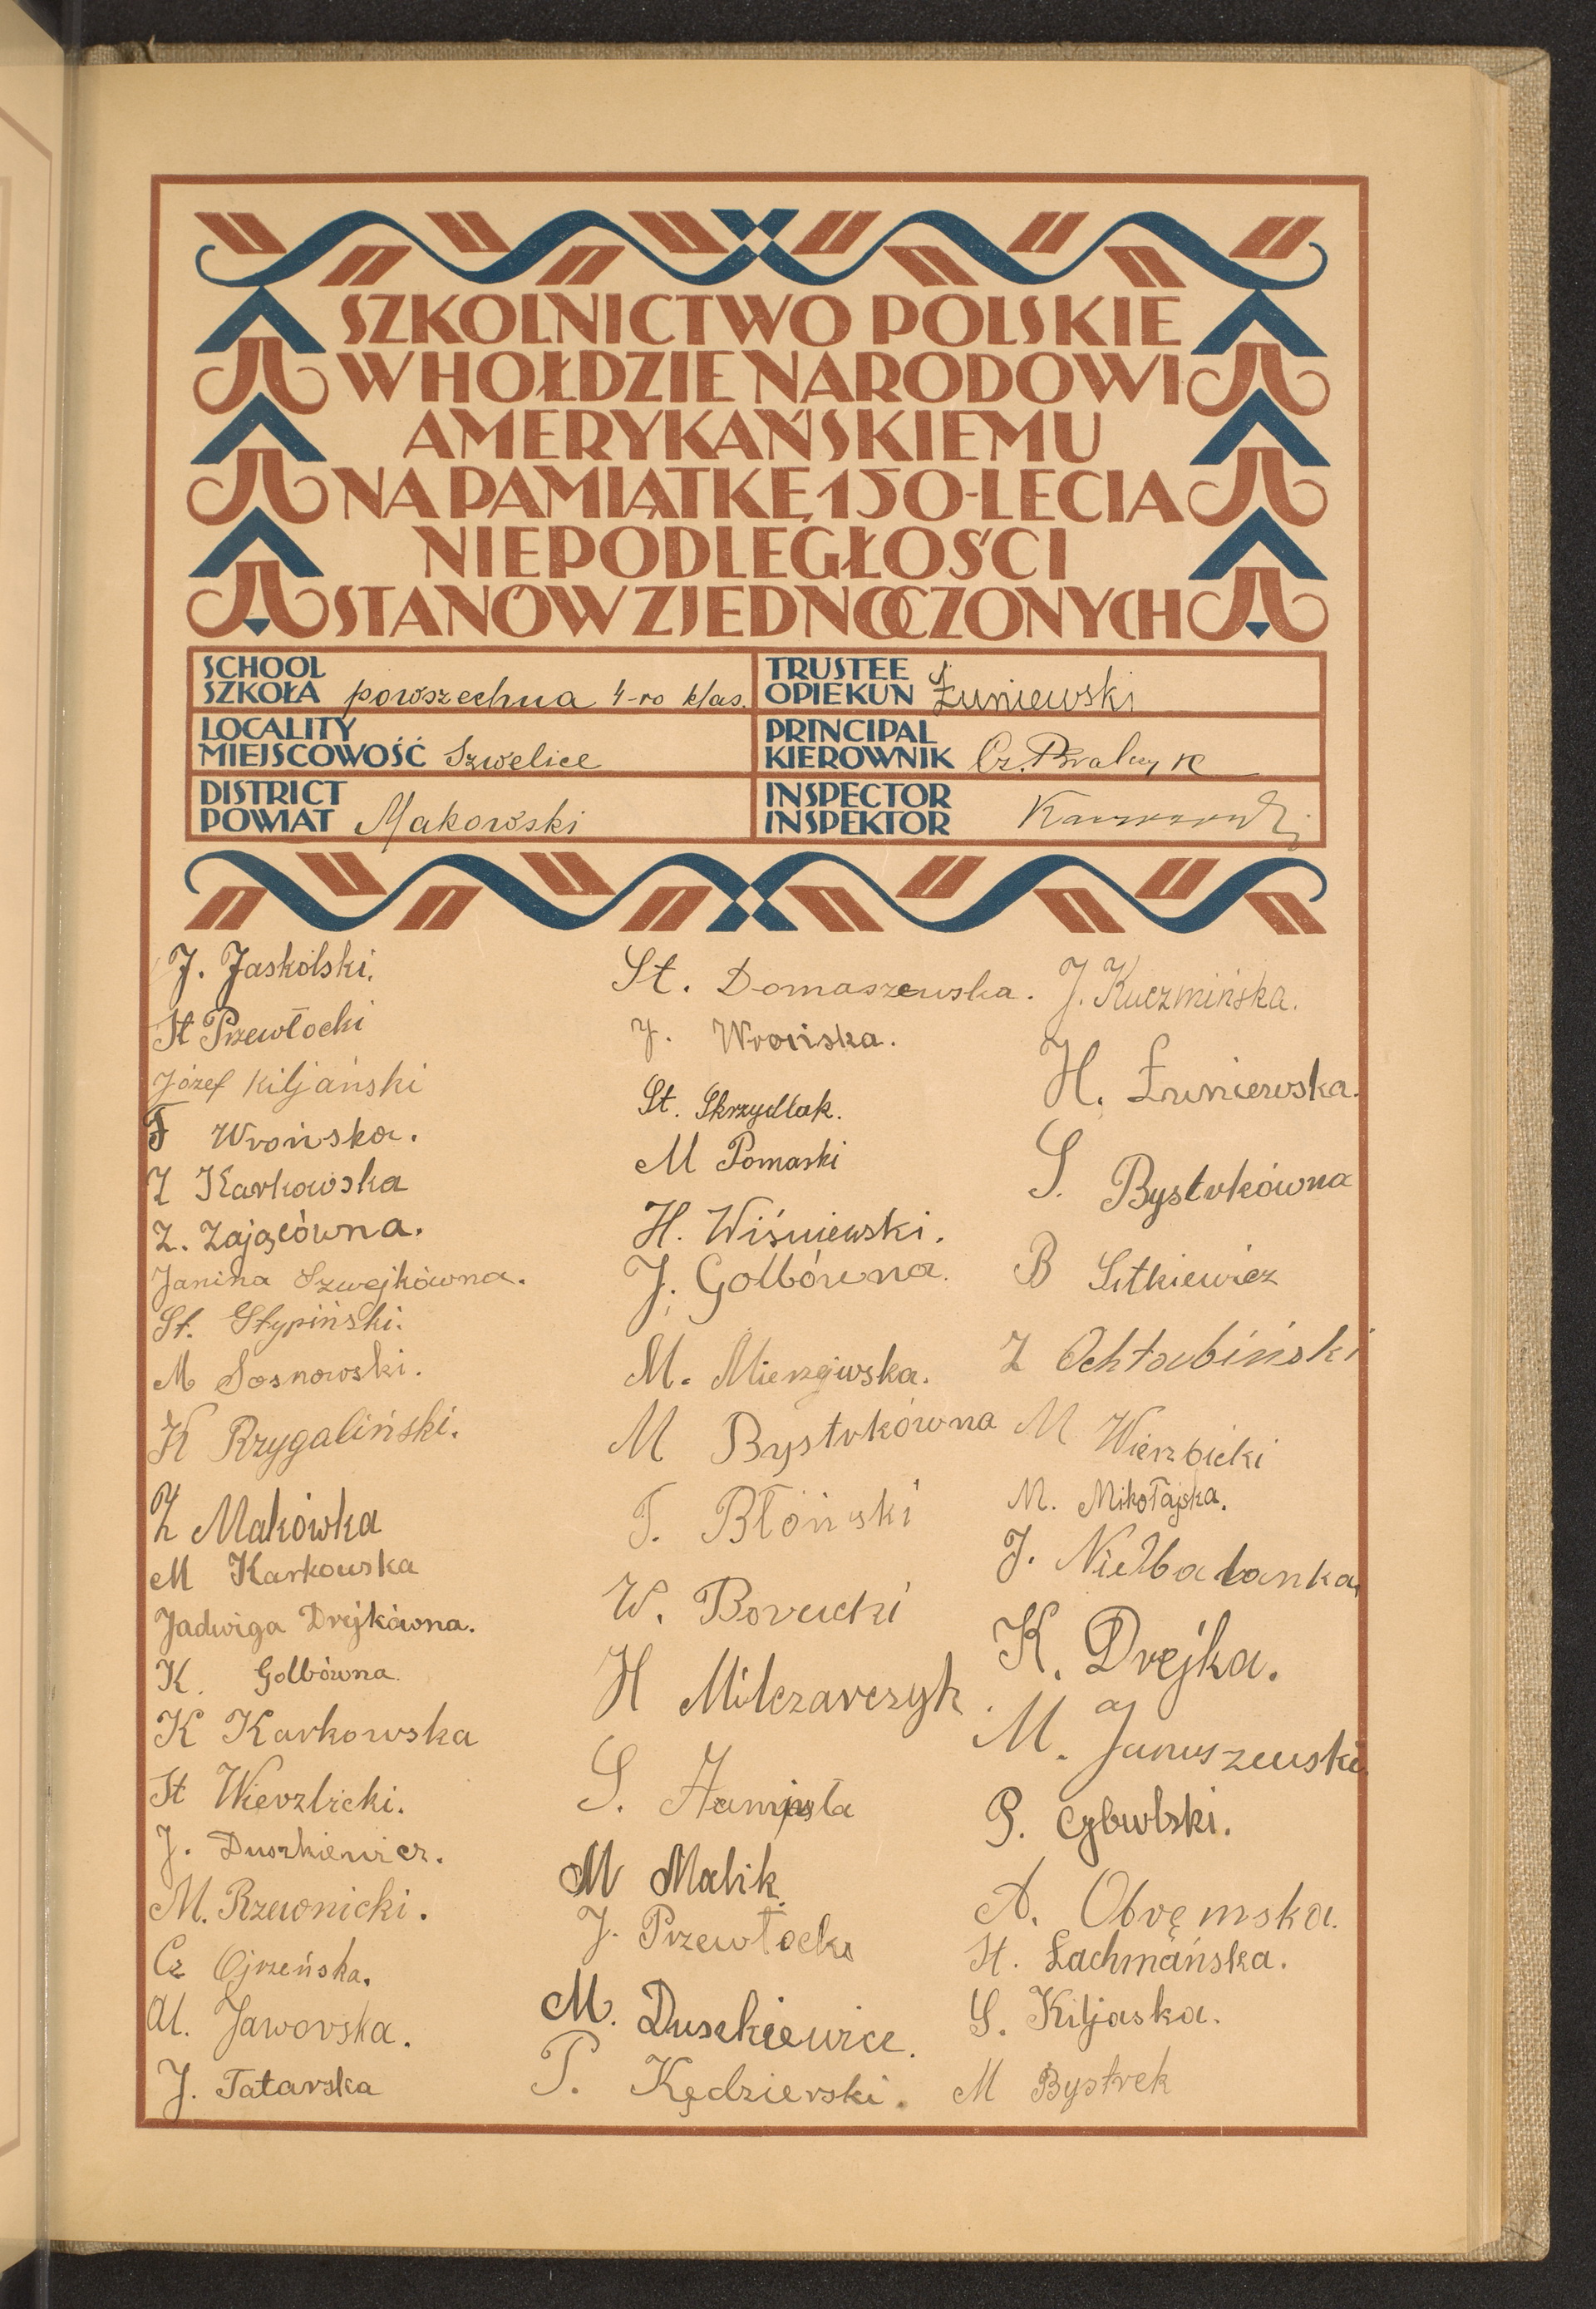 SZKOLNICTWO POLSKIE
W HOŁDZIE NARODOWI
AMERYKAŃSKIEMU
NA PAMIĄTKĘ 150-LECIA
NIEPODLEGŁOŚCI
STANÓW ZJEDNOCZONYCH
SCHOOL
SZKOŁA powszechna 4-ro klas.
LOCALITY
MIEJSCOWOŚĆ Szwelice
DISTRICT
POWIAT Makowski
TRUSTEE
OPIEKUN Łuniewski
PRINCIPAL
KIEROWNIK Cz. Bralczyk
INSPECTOR
INSPEKTOR
J. Jaskólski.
St Przewłocki
Józef Kiljański
F Wrońska.
Z Karkowska
Z. Zającówna.
Janina Szwejkówna.
St. Stypiński.
M Sosnowski.
K Rzygaliński.
Z Makówka
M Karkowska
Jadwiga Drejkówna.
K. Golbówna.
K Karkowska
St Wierzbicki.
J. Duszkiewicz.
M. Rzewnicki.
Cz Ojrzeńska.
Al. Jaworska.
J. Tatarska
St. Domaszewska.
J. Wrońska.
St. Skrzydlak.
M Pomaski
H. Wiśniewski.
J. Golbówna.
M. Mierzejwska.
M Bystrkówna
T. Błoński
W. Borucki
H Milczarczyk
S.
M Malik.
J. Przewłocki
M. Duszkiewicz.
T. Kędzierski.
J. Kuczmińska.
H. Łuniewska.
S. Bystrkówna
B Sitkiewicz
Z Ochtabiński
M Wierzbicki
M. Mikołajska.
J. Niełbałanka.
K. Drejka.
M. Januszewski.
P. Cybulski.
A. Obręmska.
St. Lachmańska.
S. Kiljaska.
M Bystrek